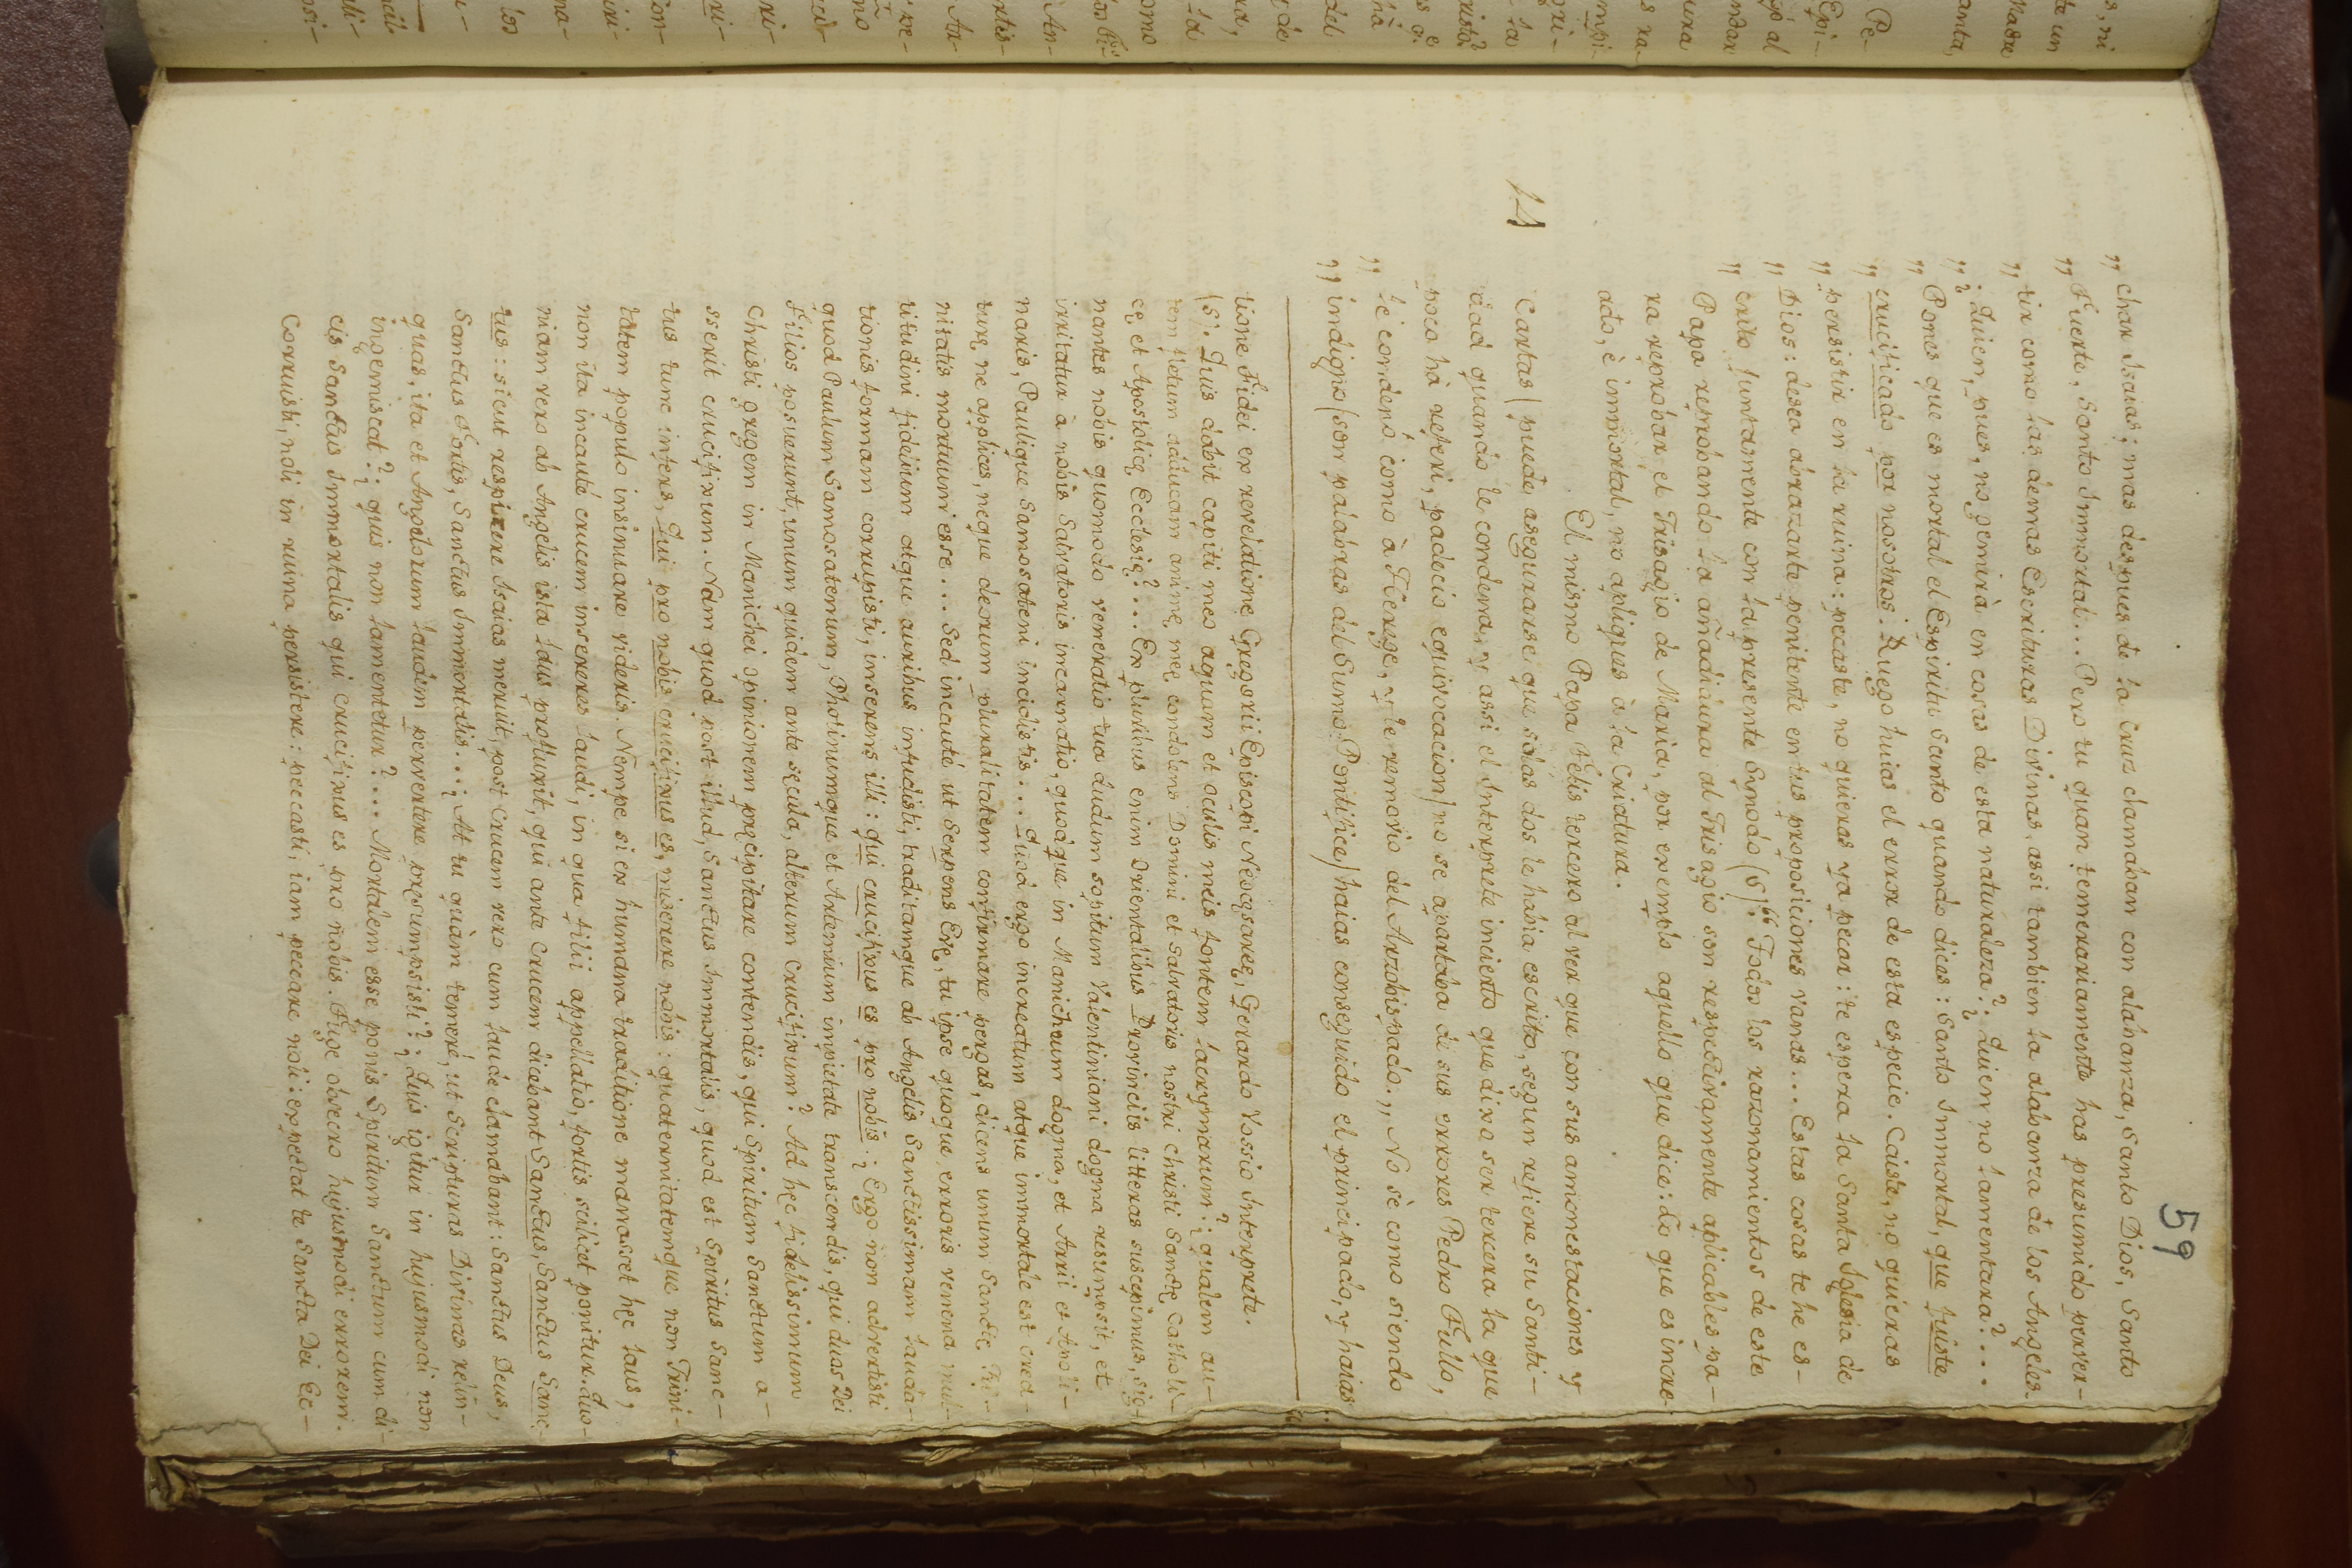 59
„ char Isaias; mas despues de la Cruz clamaban con alabanza, Santo Dios, Santo
„ Fuerte, Santo Immortal... Pero tu quan temerariamente has presumido perver-
„ tir como las demas Escrituras Divinas, assi tambien la alabanza de los Angeles.
„ ¿Quien, pues, no gemirà en cosas de esta naturaleza? ¿Quien no lamentara?...
„ Pones que es mortal el Espiritu Santo quando dices: Santo Immortal, que fuiste
„ crucificado por nosotros: Ruego huias el error de esta especie. Caiste, no quieras
„ persistir en la ruina: pecaste, no quieras ya pecar: te espera la Santa Iglesia de
„ Dios: deseo abrazarte penitente en tus proposiciones vanas... Estas cosas te he es-
„ crito juntamente con la presente Synodo (S)." Todos los razonamientos de este
Papa reprobando la añadidura al Trisagio son respectivamente aplicables pa-
ra reprobar el Trisagio de Maria, por exemplo aquello que dice: Lo que es incre-
ado, è immortal, no apliques à la Criatura.
14 El mismo Papa Felis tercero al ver que con sus amonestaciones y
Cartas (puede asegurarse que solas dos le habia escrito, segun refiere su Santi-
dad quando le condena, y assi el Interprete incierto que dixo ser tercera la que
poco hà referi, padecio equivocacion) no se apartaba di sus errores Pedro Fullo,
le condenò como à Herege, y le removio del Arzobispado. „ No sè como siendo
„ indigno (son palabras del Sumo Pontifice) haias conseguido el principado, y haias
tione Fidei ex revelatione Gregorii Episcopi Neocęsareę, Gerardo Vossio Interprete.
(S). Quis dabit capiti meo aquam et oculis meis fontem lacrymarum: ¿qualem au-
tem fletum adducam animę meę condolens Domini et Salvatoris nostri Christi Sanctę Catholi-
cę, et Apostolicę Ecclesię?... Ex pluribus enim Orientalibus Provinciis litteras suscepimus, sig-
nantes nobis quomodo veneratio tua dudum sopitum Valentiniani dogma resumpsit, et
irritatur à nobis Salvatoris incarnatio, quodque in Manicheum dogma, et Arii et Apoli-
naris, Paulique Samosateni incidetis... Quod ergo increatum atque immortale est crea-
turę ne applices, neque deorum pluralitatem confirmare pergas, dicens unum Sanctę Tri-
nitatis mortuum esse... Sed incautè ut Serpens Evę, tu ipse quoque erroris venena mul-
titudini fidelium atque auribus infudisti, traditamque ab Angelis Sanctissimam lauda-
tionis formam corrupisti, inserens illi: qui crucifixus es pro nobis: ¿Ergo non advertisti
quod Paulum Samosatenum, Photinumque et Artemium impietate transcendis, qui duos Dei
Filios posuerunt, unum quidem ante sęcula, alterum Crucifixum? Ad hęc fidelissimum
Christi gregem in Manichei opinionem pręcipitare contendis, qui Spiritum Sanctum a-
sserit crucifixum. Nam quod post illud, Sanctus Immortalis, quod est Spiritus Sanc-
tus tunc infers, Qui pro nobis crucifixus es, miserere nobis: quaternitatemque non Trini-
tatem populo insinuare videris. Nempe si ex humana traditione manasset hęc laus,
non ita incautè crucem insereres laudi, in qua filii appellatio, fortis scilicet ponitur. Quo-
niam vero ab Angelis ista laus profluxit, qui ante Crucem dicebant Sanctus, Sanctus Sanc-
tus: sicut respicere Isaias meruit, post Crucem vero cum laude clamabant: Sanctus Deus,
Sanctus Fortis, Sanctus Immortalis...¿At tu quàm temerè, ut Scripturas Divinas reliii-
quas, ita et Angelorum laudem pervertere pręsumpsisti? ¿Quis igitur in hujusmodi non
ingemiscat? ¿quis non lamentetur?... Mortalem esse ponis Spiritum Sanctum cum di-
cis Sanctus Immortalis qui crucifixus es pro nobis. Fuge obsecro hujusmodi errorem.
Corruisti, noli in ruina persistere: peccasti, iam peccare noli: expectat te Sancta Dei Ec-